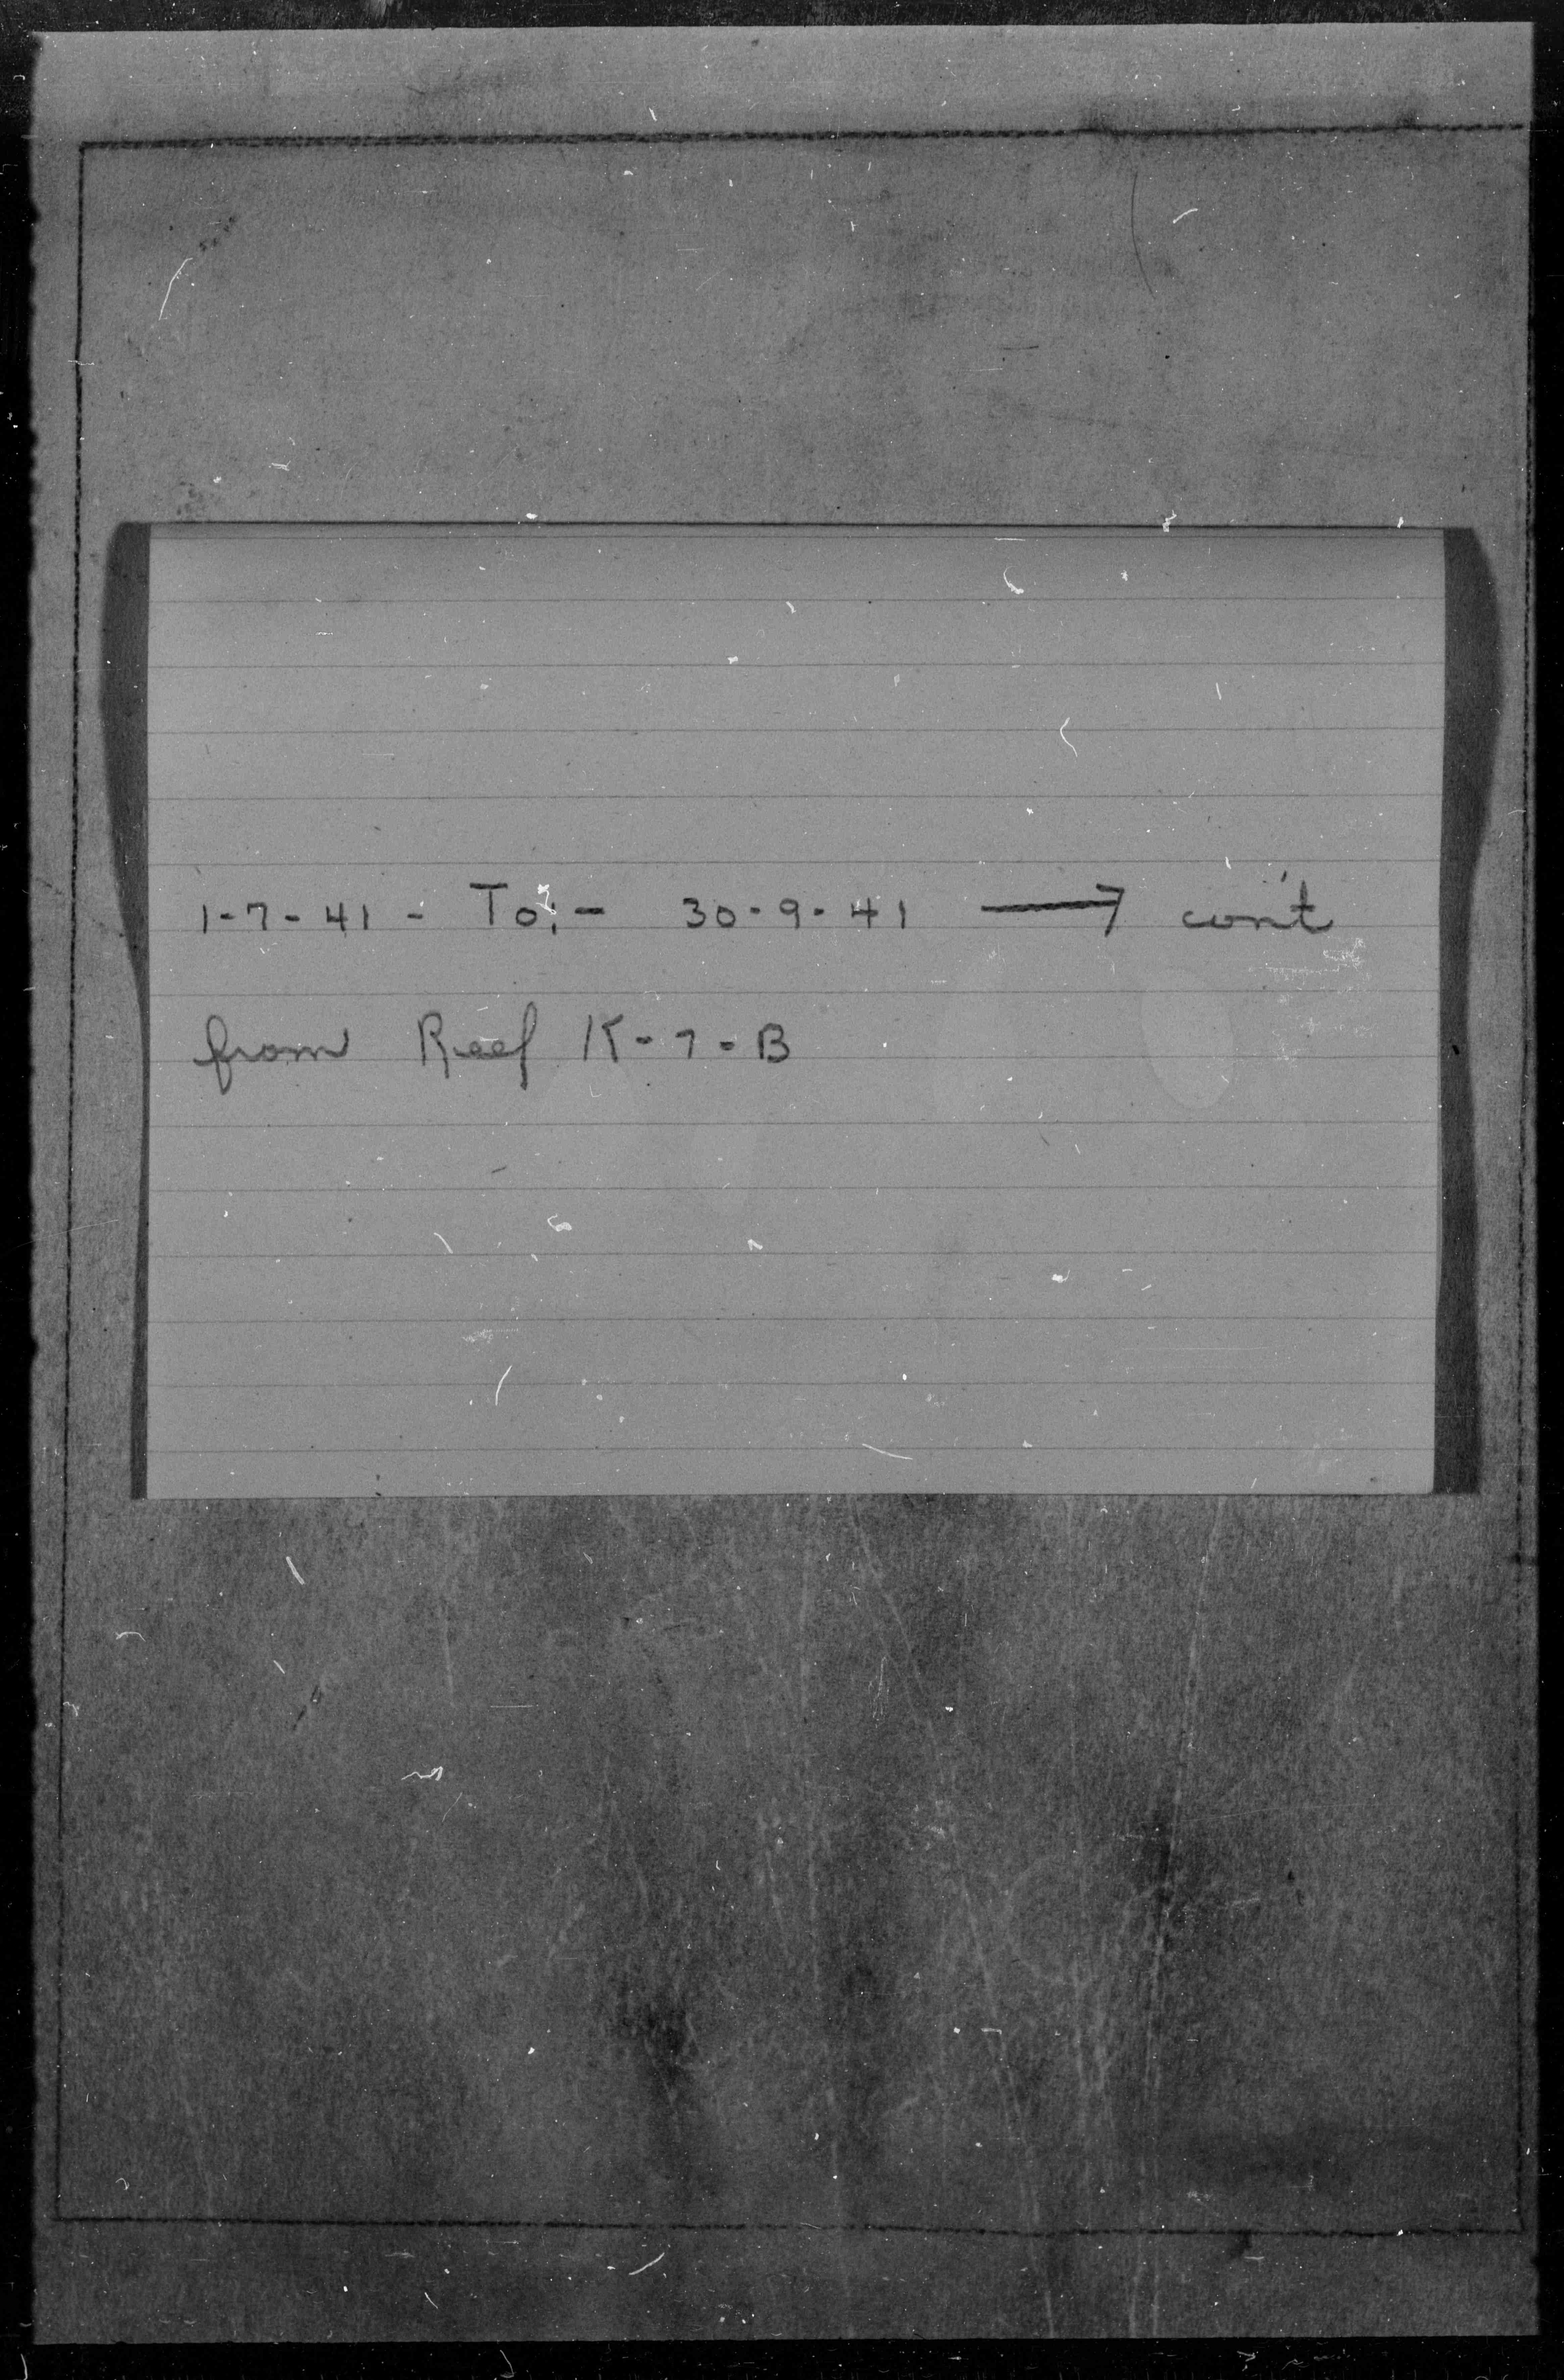 1-7-41 - To:- 30-9-41 ⟶ con't
from Reef K-7-B